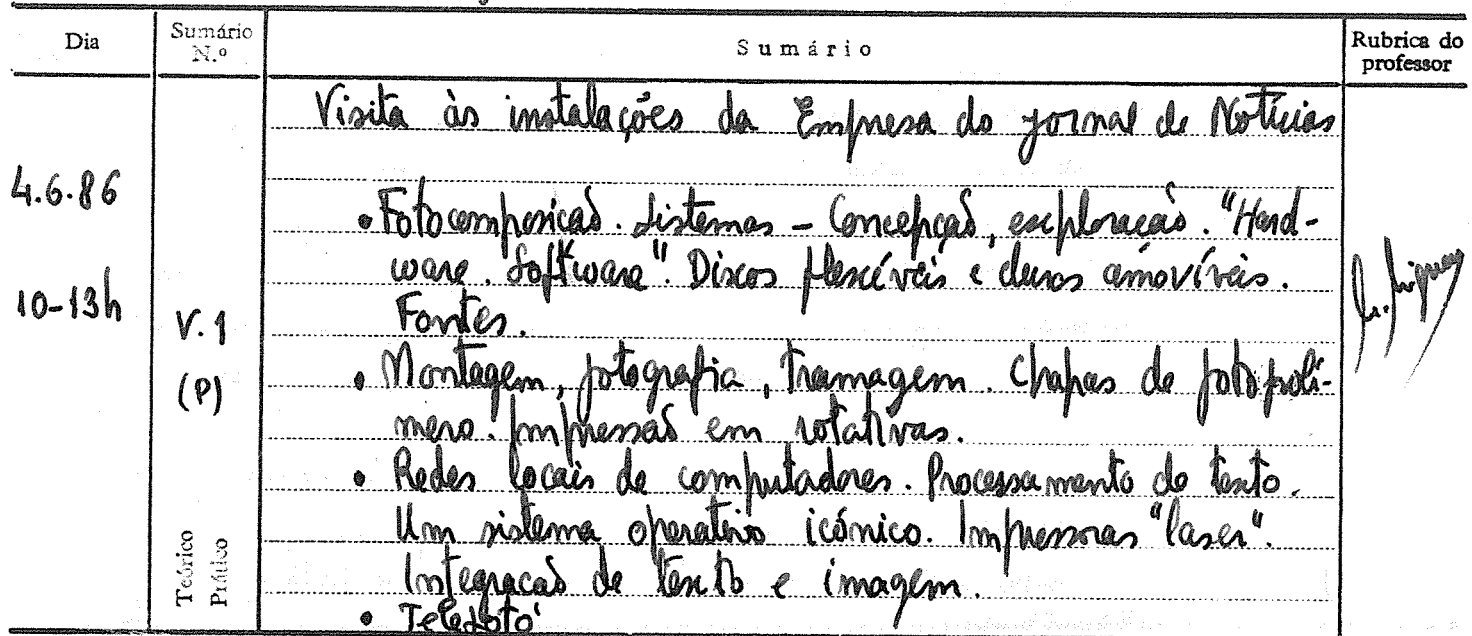 Dia
Sumário N.º
Sumário
Rubrica do professor
Visita às instalações da Empresa do Jornal de Notícias
4.6.86
• Fotocomposição. Sistemas - Concepção, exploração. "Hard-
ware. Software". Discos flexíveis e duros amovíveis.
10-13h
Fontes.
V.1
• Montagem, fotografia, tramagem. Chapas de fotopolí-
(P)
mero. Impressão em rotativas.
• Redes locais de computadores. Processamento de texto.
Um sistema operativo icónico. Impressoras "laser".
Integração de texto e imagem.
• Telefoto
Teórico
Prático